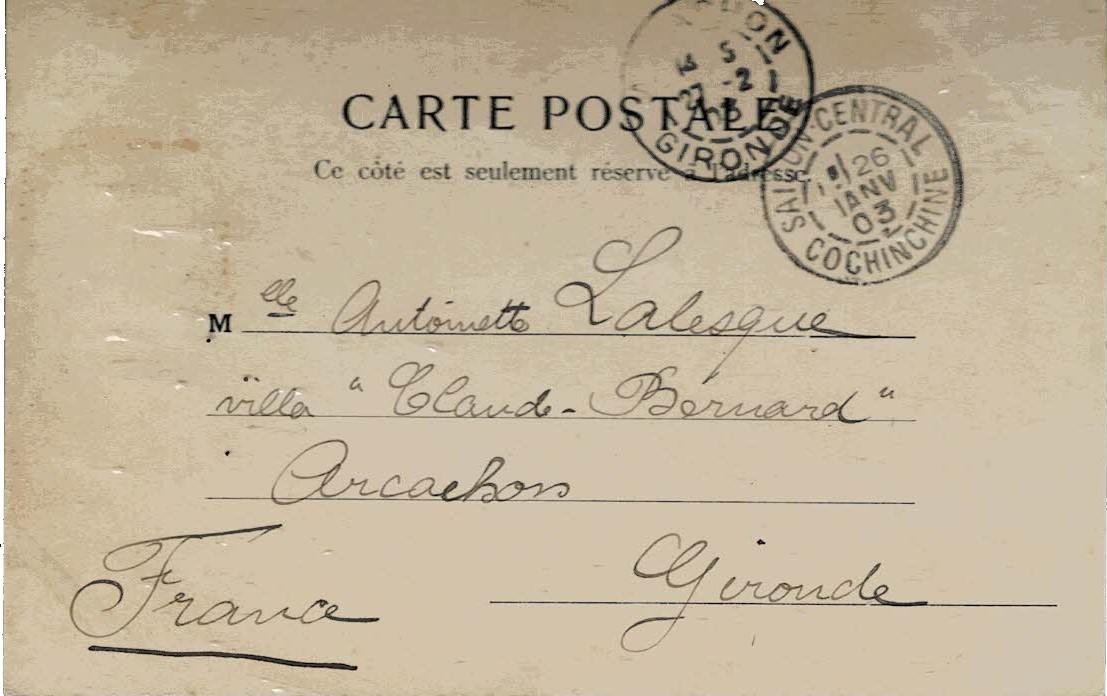 CARTE POSTALE
Ce côté est seulement réservé à l'adresse.
GIRONDE
5
27 -2
03
SAIGON-CENTRAL
26
JANV
03
COCHINCHINE
Mlle Antoinette Lalesque
villa "Claude-Bernard"
Arcachon
Gironde
France